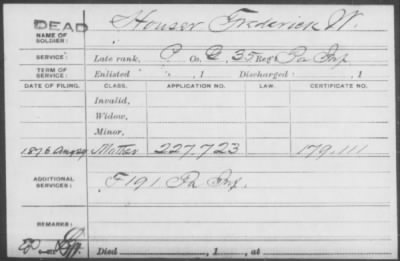 DEAD
NAME OF SOLDIER: Houser Frederick W.
SERVICE: Late rank, P. Co. E, 35 Reg't Pa Inf
TERM OF SERVICE: Enlisted , 1 Discharged , 1
DATE OF FILING. CLASS. APPLICATION NO. LAW. CERTIFICATE NO.
Invalid,
Widow,
Minor,
1878 Mother 227.723 179.111
ADDITIONAL SERVICES: F 191 Pa Inf.
REMARKS:
Died , 1 , at